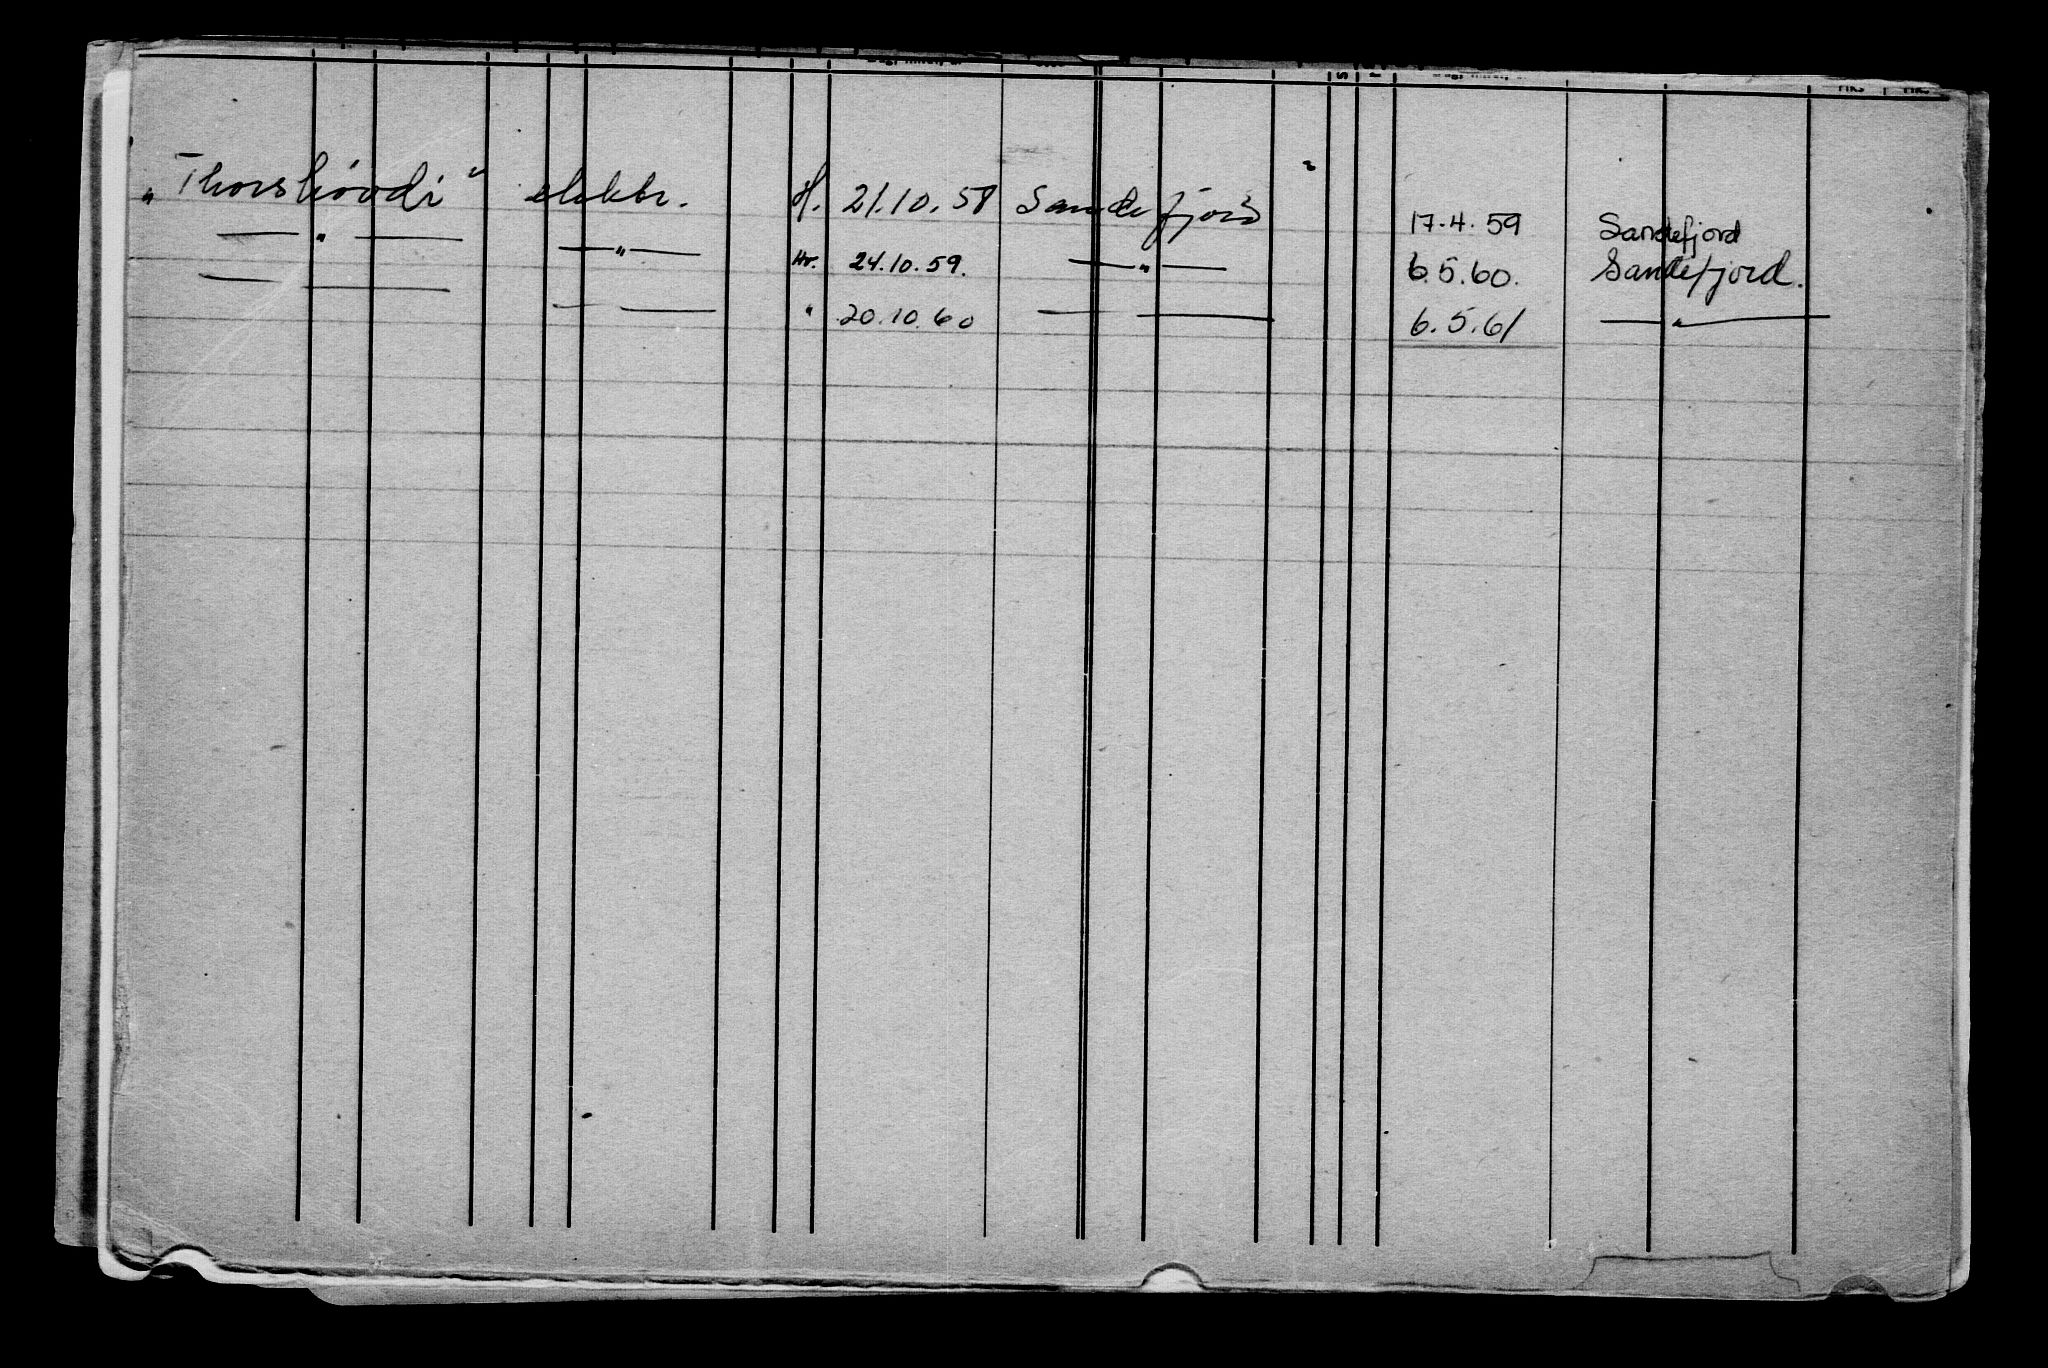 „Thorshövdi" elektr. H. 21.10.58 Sandefjord 17.4.59 Sandefjord
— „ — — „ — Hv. 24.10.59. — „ — 6.5.60. Sandefjord.
— — — — " 20.10.60 — — 6.5.61 — „ —